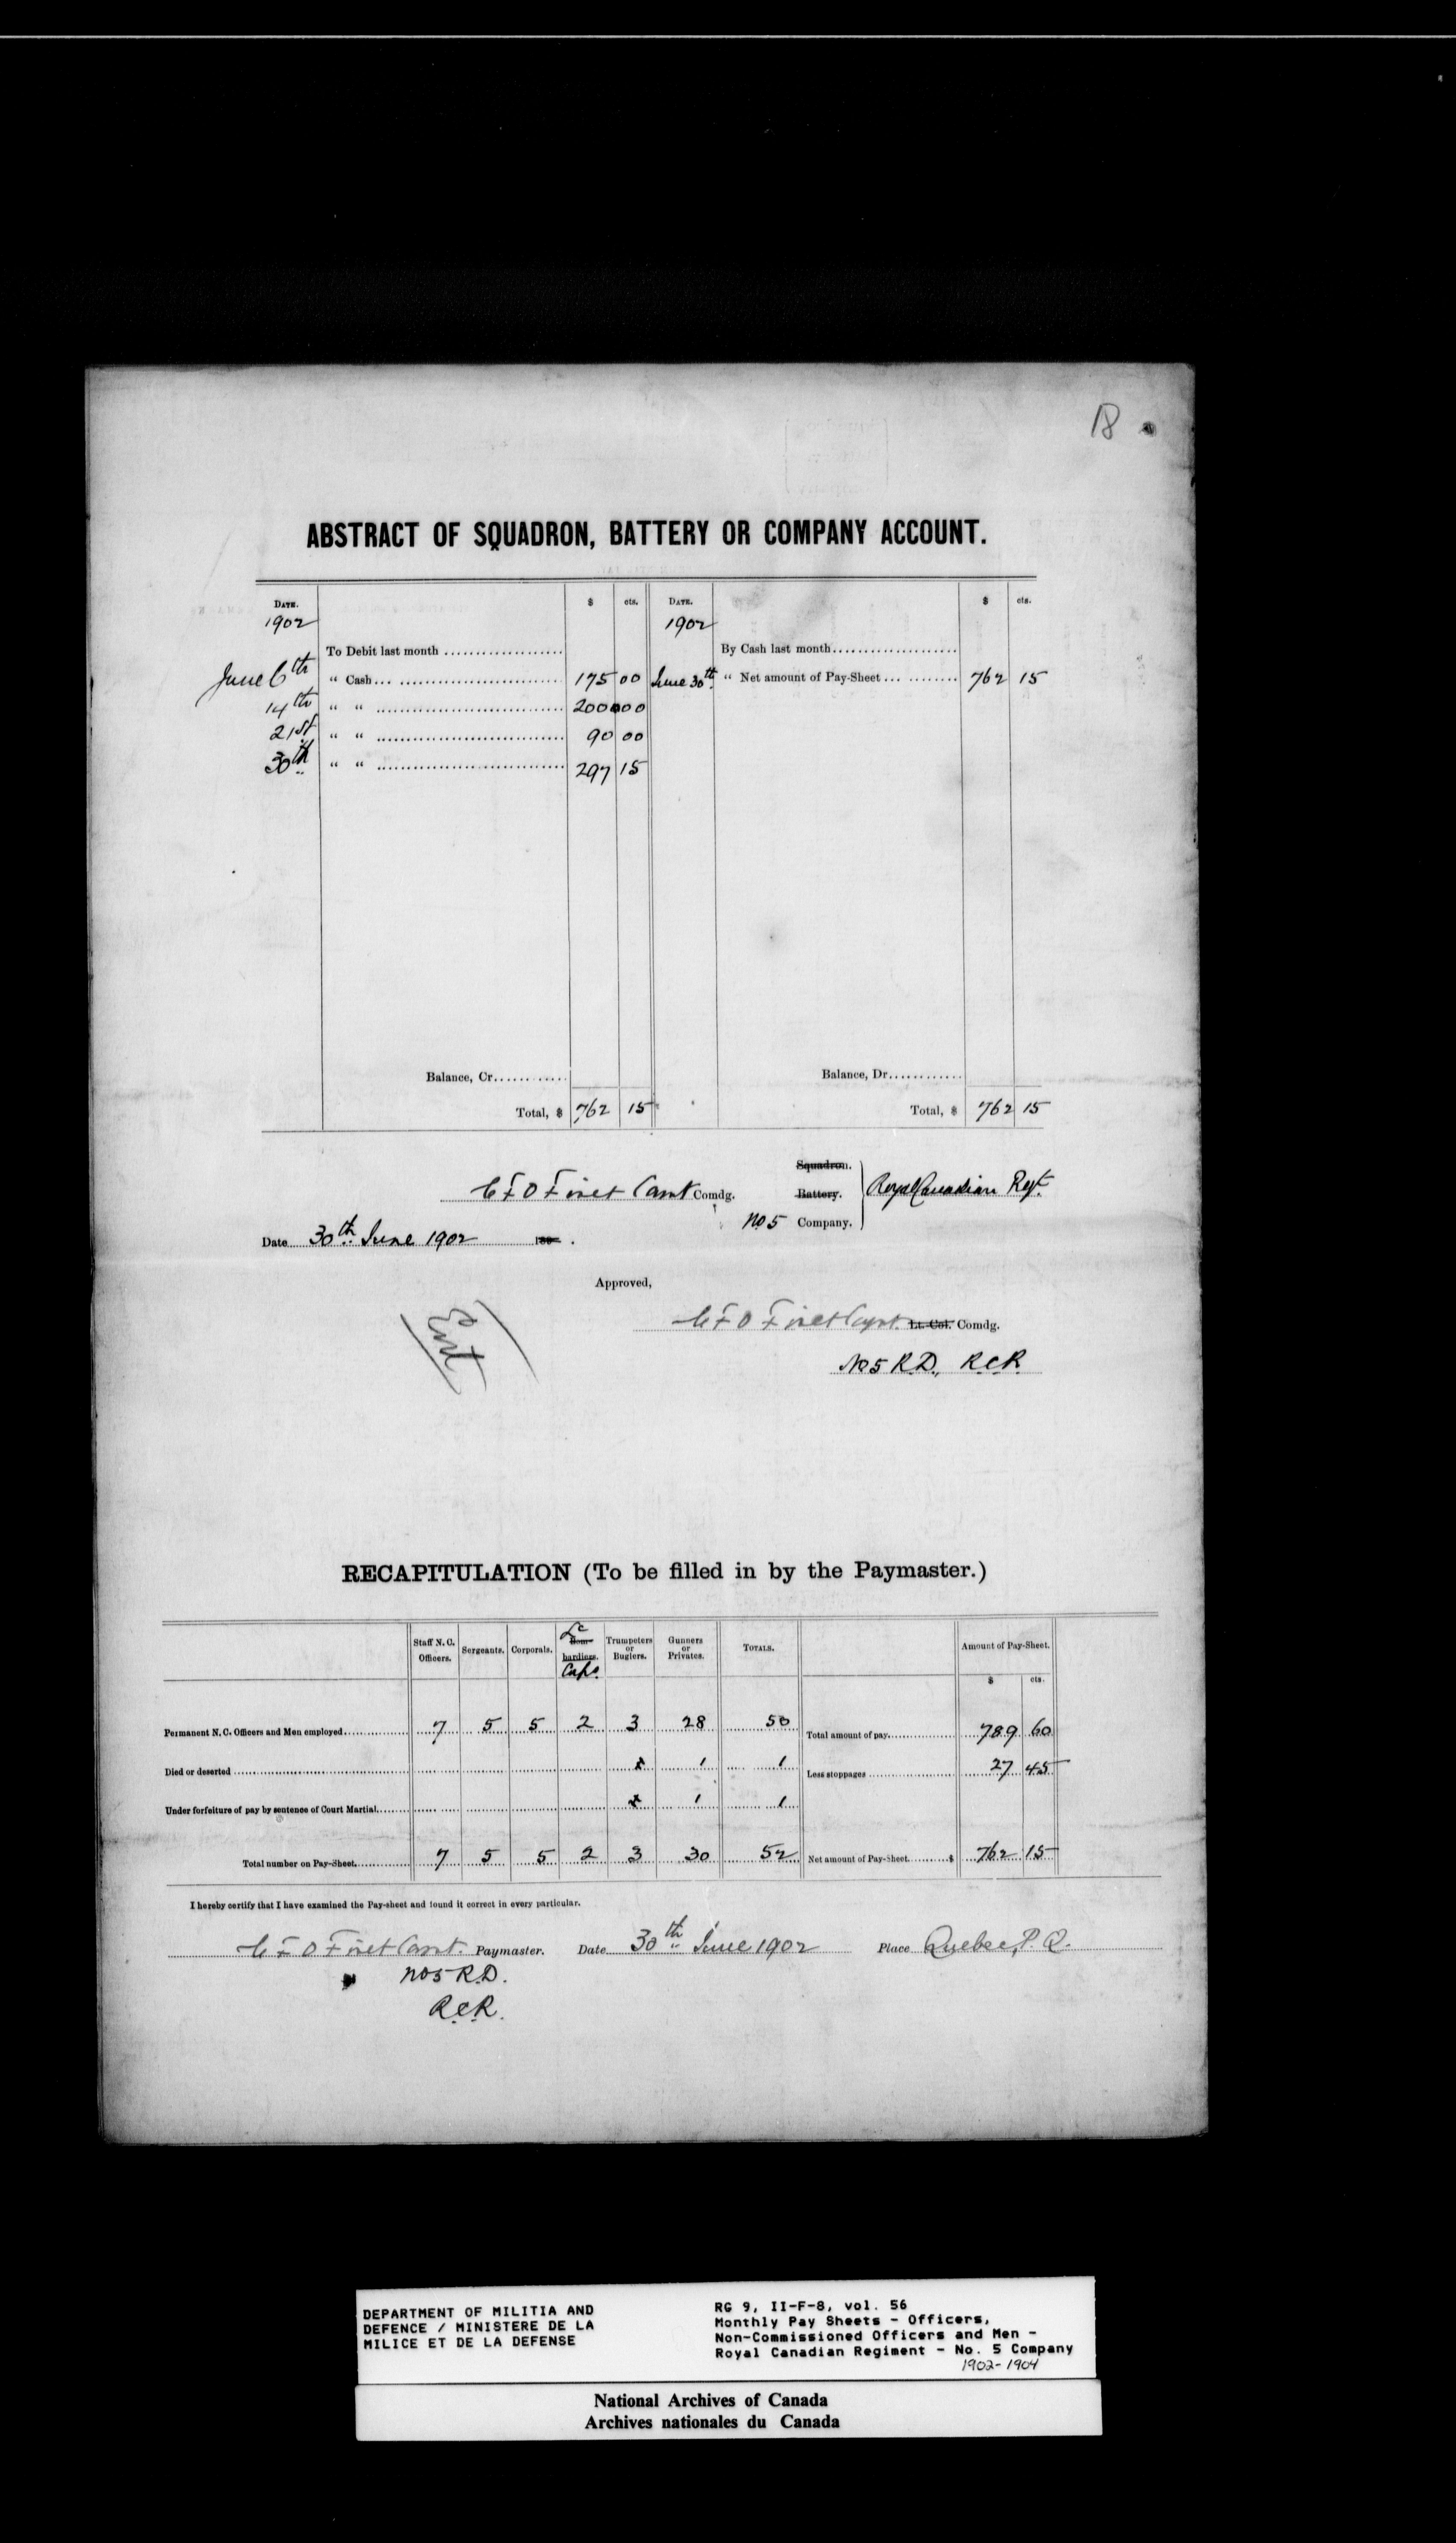 18
ABSTRACT OF SQUADRON, BATTERY OR COMPANY ACCOUNT.
DATE. $ cts. DATE. $ cts.
1902 1902
To Debit last month By Cash last month
June 6th " Cash 175 00 June 30th " Net amount of Pay-Sheet 762 15
14th " " 200 00
21st " " 90 00
30th " " 297 15
Balance, Cr. Balance, Dr.
Total, $ 762 15 Total, $ 762 15
Squadron.
C F O Fiset Capt Comdg. Battery. Royal Canadian Regt.
No 5 Company.
Date 30th June 1902 189 .
Approved,
C F O Fiset Capt. Lt. Col. Comdg.
Ent
No 5 R.D., R.C.R.
RECAPITULATION (To be filled in by the Paymaster.)
Staff N. C. Officers. Sergeants. Corporals. Lc Bom-bardiers. Corps. Trumpeters or Buglers. Gunners or Privates. TOTALS. Amount of Pay-Sheet.
$ cts.
Permanent N. C. Officers and Men employed 7 5 5 2 3 28 50 Total amount of pay 789 60
Died or deserted x 1 1 Less stoppages 27 45
Under forfeiture of pay by sentence of Court Martial x 1 1
Total number on Pay-Sheet 7 5 5 2 3 30 52 Net amount of Pay-Sheet $ 762 15
I hereby certify that I have examined the Pay-sheet and found it correct in every particular.
C F O Fiset Capt. Paymaster. Date 30th June 1902 Place Quebec, P. Q.
No 5 R.D.
R.C.R.
DEPARTMENT OF MILITIA AND
DEFENCE / MINISTERE DE LA
MILICE ET DE LA DEFENSE
RG 9, II-F-8, vol. 56
Monthly Pay Sheets - Officers,
Non-Commissioned Officers and Men -
Royal Canadian Regiment - No. 5 Company
1902-1904
National Archives of Canada
Archives nationales du Canada